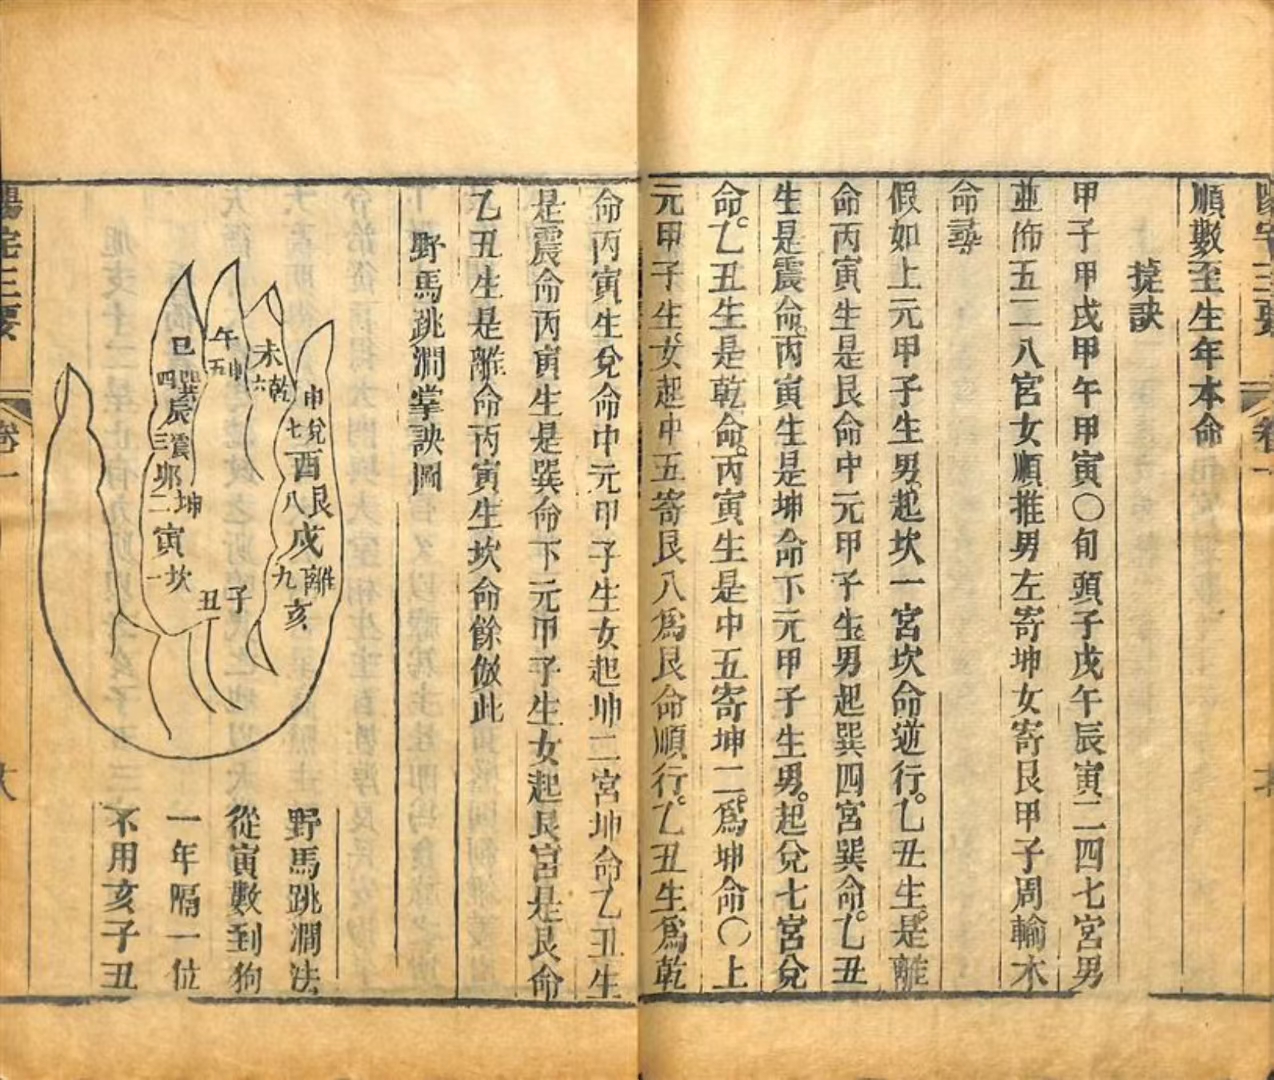 順數至生年本命
捷訣
甲子甲戌甲午甲寅〇旬頭子戌午辰寅二四七宮男
並佈五二八宮女順推男左寄坤女寄艮甲子周輪本
命尋
假如上元甲子生男起坎一宮坎命逆行乙丑生是離
命丙寅生是艮命中元甲子生男起巽四宮巽命乙丑
生是震命丙寅生是坤命下元甲子生男起兌七宮兌
命乙丑生是乾命丙寅生是中五寄坤二為坤命〇上
元甲子生女起中五寄艮八為艮命順行乙丑生為乾
命丙寅生兌命中元甲子生女起坤二宮坤命乙丑生
是震命丙寅生是巽命下元甲子生女起艮宮是艮命
乙丑生是離命丙寅生坎命餘倣此
野馬跳澗掌訣圖
申
兌七
酉
艮八
戌
離九
亥
未
乾六
午
中五
巳
巽四
辰
震三
卯
坤二
寅
坎一
子
丑
野馬跳澗法
從寅數到狗
一年隔一位
不用亥子丑
陽宅三要
卷一